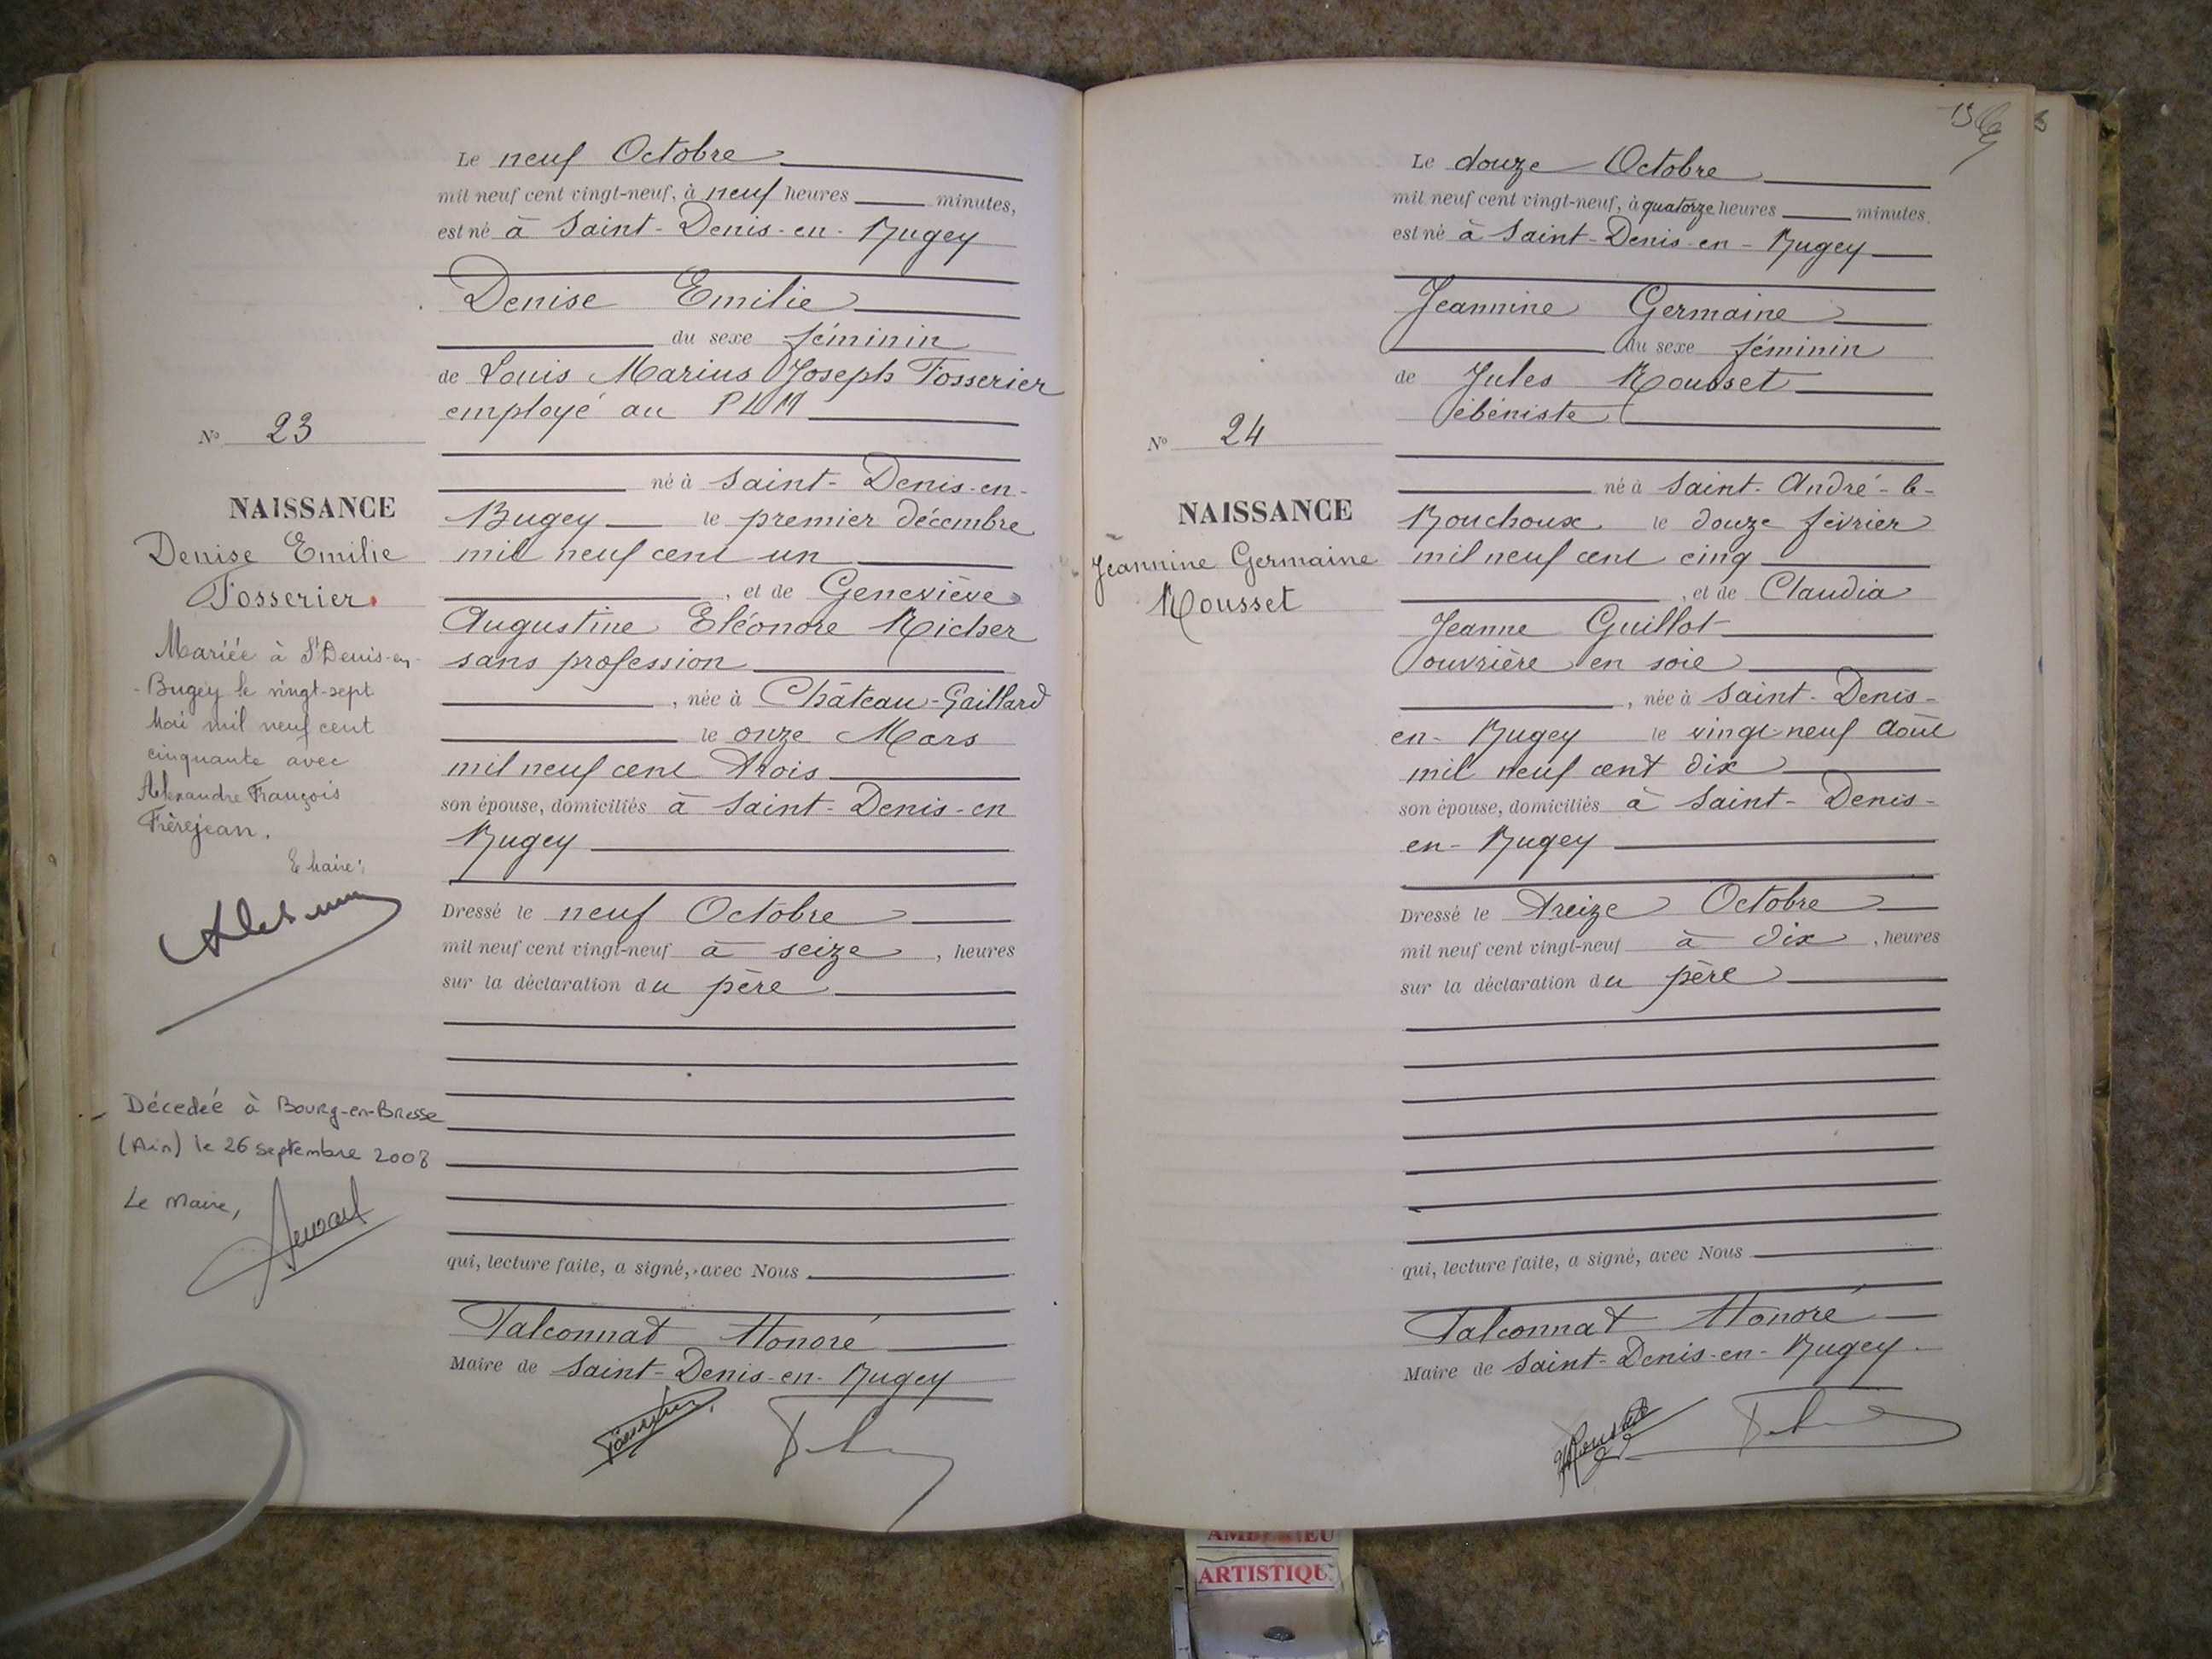 Le neuf Octobre
mil neuf cent vingt-neuf, à neuf heures minutes,
est né à Saint-Denis-en-Bugey
Denise Emilie
du sexe féminin
de Louis Marius Joseph Tosserier
employé au PLM
né à Saint-Denis-en-
Bugey le premier décembre
mil neuf cent un
, et de Geneviève
Augustine Eléonore Richer
sans profession
, née à Château-Gaillard
le onze Mars
mil neuf cent trois
son épouse, domiciliés à Saint-Denis-en
Bugey
Dressé le neuf Octobre
mil neuf cent vingt-neuf à seize, heures
sur la déclaration du père
qui, lecture faite, a signé, avec Nous
Falconnat Honoré
Maire de Saint-Denis-en-Bugey
N° 23
NAISSANCE
Denise Emilie
Tosserier
Mariée à St Denis-en-
Bugey le vingt-sept
Mai mil neuf cent
cinquante avec
Alexandre François
Frèrejean.
Le Maire:
Décedée à Bourg-en-Bresse
(Ain) le 26 septembre 2008
Le Maire,
Le douze Octobre
mil neuf cent vingt-neuf, à quatorze heures minutes.
est né à Saint-Denis-en-Bugey
Jeannine Germaine
du sexe féminin
de Jules Rousset
ébéniste
né à Saint-André-le-
Bouchoux le douze février
mil neuf cent cinq
, et de Claudia
Jeanne Guillot
ouvrière en soie
, née à Saint-Denis-
en-Bugey le vingt-neuf Août
mil neuf cent dix
son épouse, domiciliés à Saint-Denis-
en-Bugey
Dressé le treize Octobre
mil neuf cent vingt-neuf à dix, heures
sur la déclaration du père
qui, lecture faite, a signé, avec Nous
Falconnat Honoré
Maire de Saint-Denis-en-Bugey
N° 24
NAISSANCE
Jeannine Germaine
Rousset
ARTISTIQU